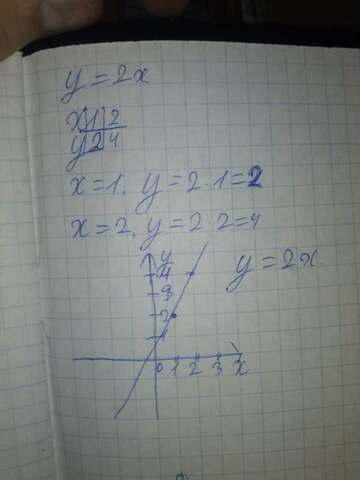 y=2x
x|1|2
y|2|4
x=1, y=2·1=2
x=2, y=2·2=4
y
4
3
2
1
y=2x
0 1 2 3 x